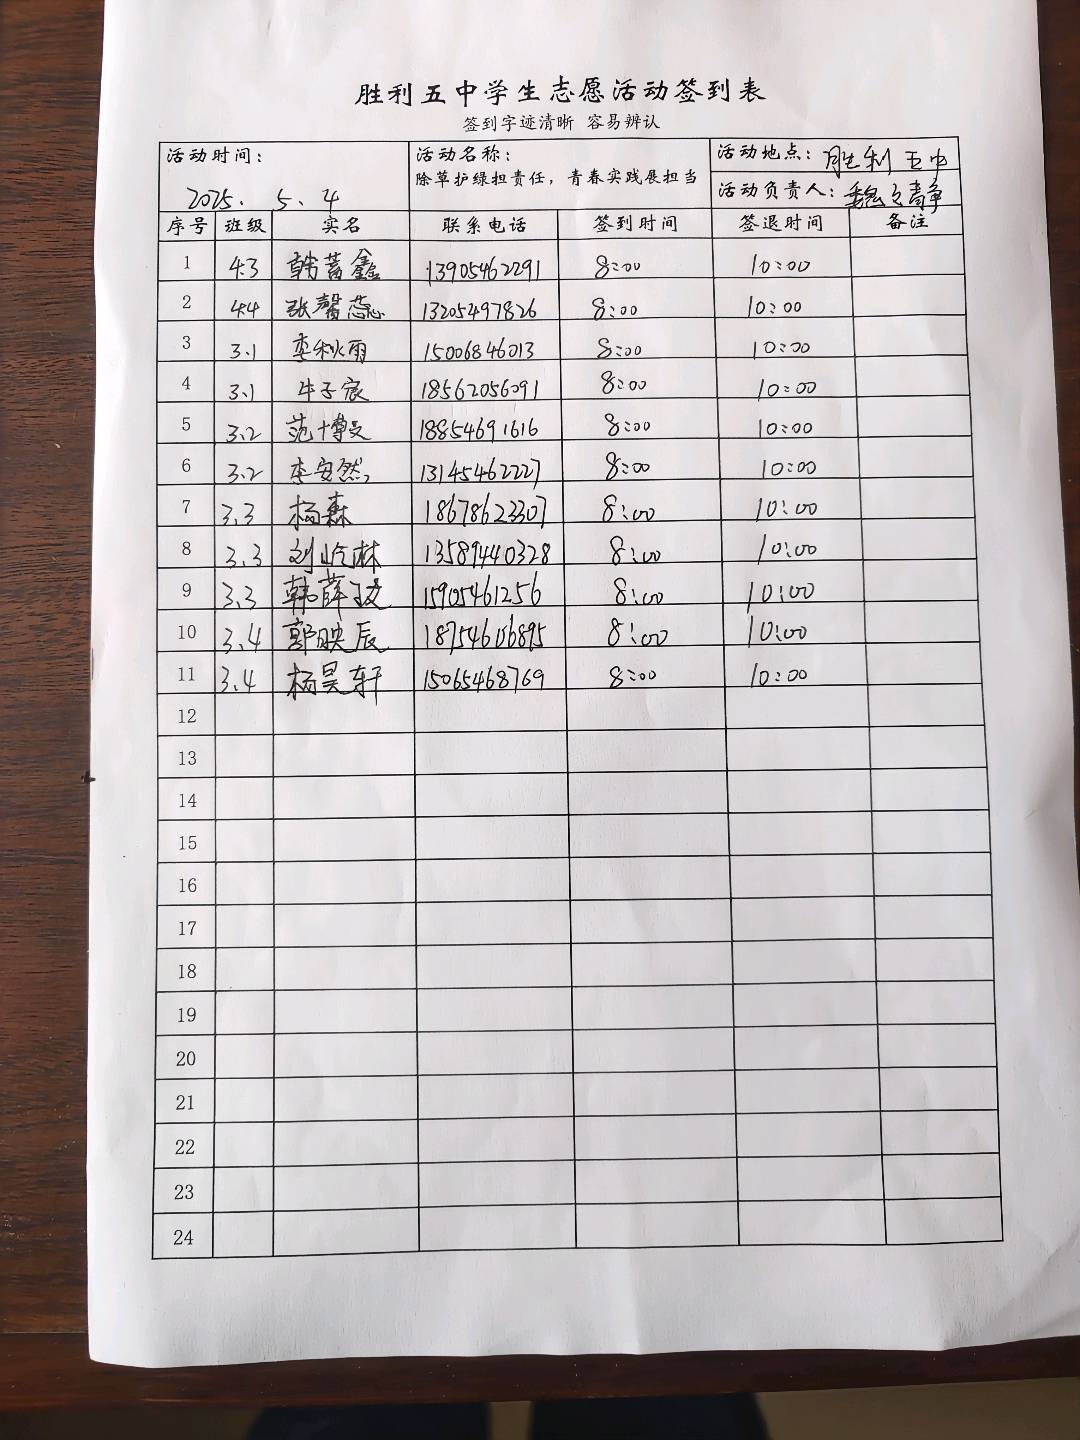 胜利五中学生志愿活动签到表
签到字迹清晰 容易辨认
活动时间： 2025.5.4
活动名称： 除草护绿担责任，青春实践展担当
活动地点：胜利五中
活动负责人：魏文静
序号 班级 实名 联系电话 签到时间 签退时间 备注
1 4.3 韩蓄鑫 13905462291 8:00 10:00
2 4.4 张馨蕊 13205497826 8:00 10:00
3 3.1 李秋雨 15006846013 8:00 10:00
4 3.1 牛子宸 18562056091 8:00 10:00
5 3.2 范博文 18854691616 8:00 10:00
6 3.2 李安然 13145462227 8:00 10:00
7 3.3 杨森 18678623307 8:00 10:00
8 3.3 刘屹林 13589440328 8:00 10:00
9 3.3 韩薛文 15905461256 8:00 10:00
10 3.4 郭映辰 18754606895 8:00 10:00
11 3.4 杨昊轩 15065468769 8:00 10:00
12
13
14
15
16
17
18
19
20
21
22
23
24